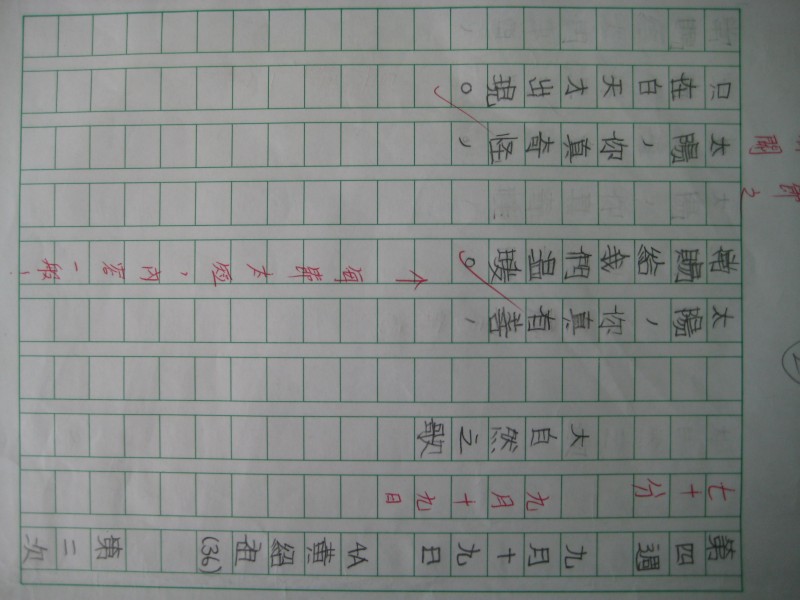 第四週 九月十九日 4A 黃紹祖 (36) 第二次
七十分 九月十九日
大自然之歌
太陽，你真有善，
賜給我們溫暖。
↑每節太短，內容一般！
太陽，你真奇怪，
只在白天才出現。
節之
開